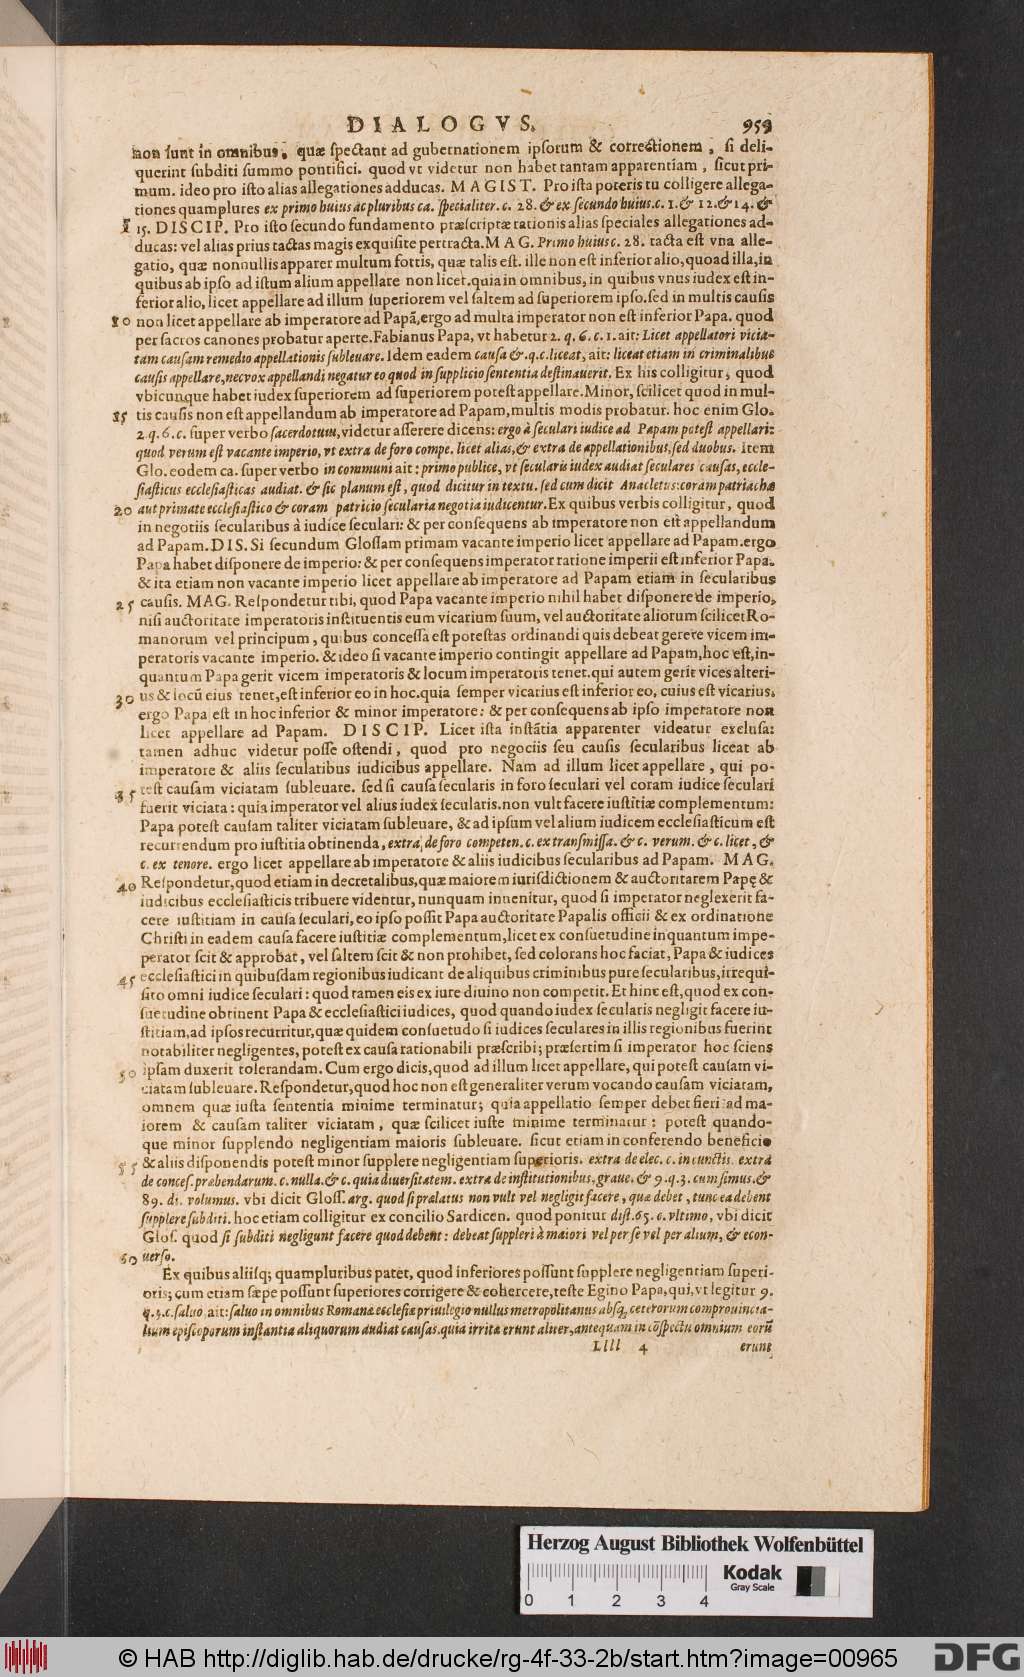 DIALOGVS. 959
non sunt in omnibus, quæ spectant ad gubernationem ipsorum & correctionem, si deli-
querint subditi summo pontifici. quod vt videtur non habet tantam apparentiam, sicut pri-
mum. ideo pro isto alias allegationes adducas. MAGIST. Pro ista poteris tu colligere allega-
tiones quamplures ex primo huius ac pluribus ca. specialiter. c. 28. & ex secundo huius. c. 1. & 12. & 14. &
5 15. DISCIP. Pro isto secundo fundamento præscriptæ rationis alias speciales allegationes ad-
ducas: vel alias prius tactas magis exquisite pertracta. MAG. Primo huius c. 28. tacta est vna alle-
gatio, quæ nonnullis apparet multum fortis, quæ talis est. ille non est inferior alio, quoad illa, in
quibus ab ipso ad istum alium appellare non licet. quia in omnibus, in quibus vnus iudex est in-
ferior alio, licet appellare ad illum superiorem vel saltem ad superiorem ipso. sed in multis causis
10 non licet appellare ab imperatore ad Papã, ergo ad multa imperator non est inferior Papa. quod
per sacros canones probatur aperte. Fabianus Papa, vt habetur 2. q. 6. c. 1. ait: Licet appellatori vicia-
tam causam remedio appellationis subleuare. Idem eadem causa & .q. c. liceat, ait: liceat etiam in criminalibus
causis appellare, nec vox appellandi negatur eo quod in supplicio sententia destinauerit. Ex his colligitur, quod
vbicunque habet iudex superiorem ad superiorem potest appellare. Minor, scilicet quod in mul-
15 tis causis non est appellandum ab imperatore ad Papam, multis modis probatur. hoc enim Glo.
2. q. 6. c. super verbo sacerdotum, videtur asserere dicens: ergo à seculari iudice ad Papam potest appellari:
quod verum est vacante imperio, vt extra de foro compe. licet alias, & extra de appellationibus, sed duobus. item
Glo. eodem ca. super verbo in communi ait: primo publice, vt secularis iudex audiat seculares causas, eccle-
siasticus ecclesiasticas audiat. & sic planum est, quod dicitur in textu. sed cum dicit Anacletus: coram patriacha
20 aut primate ecclesiastico & coram patricio secularia negotia iudicentur. Ex quibus verbis colligitur, quod
in negotiis secularibus à iudice seculari: & per consequens ab imperatore non est appellandum
ad Papam. DIS. Si secundum Glossam primam vacante imperio licet appellare ad Papam. ergo
Papa habet disponere de imperio: & per consequens imperator ratione imperii est inferior Papa.
& ita etiam non vacante imperio licet appellare ab imperatore ad Papam etiam in secularibus
25 causis. MAG. Respondetur tibi, quod Papa vacante imperio nihil habet disponere de imperio,
nisi auctoritate imperatoris instituentis eum vicarium suum, vel auctoritate aliorum scilicet Ro-
manorum vel principum, quibus concessa est potestas ordinandi quis debeat gerere vicem im-
peratoris vacante imperio. & ideo si vacante imperio contingit appellare ad Papam, hoc est, in-
quantum Papa gerit vicem imperatoris & locum imperatoris tenet. qui autem gerit vices alteri-
30 us & locũ eius tenet, est inferior eo in hoc. quia semper vicarius est inferior eo, cuius est vicarius.
ergo Papa est in hoc inferior & minor imperatore: & per consequens ab ipso imperatore non
licet appellare ad Papam. DISCIP. Licet ista instãtia apparenter videatur exclusa:
tamen adhuc videtur posse ostendi, quod pro negociis seu causis secularibus liceat ab
imperatore & aliis secularibus iudicibus appellare. Nam ad illum licet appellare, qui po-
35 test causam viciatam subleuare. sed si causa secularis in foro seculari vel coram iudice seculari
fuerit viciata: quia imperator vel alius iudex secularis. non vult facere iustitiæ complementum:
Papa potest causam taliter viciatam subleuare, & ad ipsum vel alium iudicem ecclesiasticum est
recurrendum pro iustitia obtinenda, extra, de foro competen. c. ex transmissa. & c. verum. & c. licet, &
c. ex tenore. ergo licet appellare ab imperatore & aliis iudicibus secularibus ad Papam. MAG.
40 Respondetur, quod etiam in decretalibus, quæ maiorem iurisdictionem & auctoritatem Papę &
iudicibus ecclesiasticis tribuere videntur, nunquam inuenitur, quod si imperator neglexerit fa-
cere iustitiam in causa seculari, eo ipso possit Papa auctoritate Papalis officii & ex ordinatione
Christi in eadem causa facere iustitiæ complementum, licet ex consuetudine inquantum impe-
perator scit & approbat, vel saltem scit & non prohibet, sed colorans hoc faciat, Papa & iudices
45 ecclesiastici in quibusdam regionibus iudicant de aliquibus criminibus pure secularibus, irrequi-
sito omni iudice seculari: quod tamen eis ex iure diuino non competit. Et hinc est, quod ex con-
suetudine obtinent Papa & ecclesiastici iudices, quod quando iudex secularis negligit facere iu-
stitiam, ad ipsos recurritur, quæ quidem consuetudo si iudices seculares in illis regionibus fuerint
notabiliter negligentes, potest ex causa rationabili præscribi; præsertim si imperator hoc sciens
50 ipsam duxerit tolerandam. Cum ergo dicis, quod ad illum licet appellare, qui potest causam vi-
ciatam subleuare. Respondetur, quod hoc non est generaliter verum vocando causam viciatam,
omnem quæ iusta sententia minime terminatur; quia appellatio semper debet fieri ad ma-
iorem & causam taliter viciatam, quæ scilicet iuste minime terminatur: potest quando-
que minor supplendo negligentiam maioris subleuare. sicut etiam in conferendo beneficio
55 & aliis disponendis potest minor supplere negligentiam superioris. extra de elec. c. in cunctis. extra
de conces. præbendarum. c. nulla. & c. quia diuersitatem. extra de institutionibus, graue. & 9. q. 3. cum simus. &
89. di. volumus. vbi dicit Gloss. arg. quod si prælatus non vult vel negligit facere, quæ debet, tunc ea debent
supplere subditi. hoc etiam colligitur ex concilio Sardicen. quod ponitur dist. 65. c. vltimo, vbi dicit
Glos. quod si subditi negligunt facere quod debent: debeat suppleri à maiori vel per se vel per alium, & econ-
60 uerso.
Ex quibus aliisq; quampluribus patet, quod inferiores possunt supplere negligentiam superi-
oris; cum etiam sæpe possunt superiores corrigere & cohercere, teste Egino Papa, qui, vt legitur 9.
q. 3. c. saluo, ait: saluo in omnibus Romanæ ecclesiæ priuilegio nullus metropolitanus absq; ceterorum comprouincia-
lium episcoporum instantia aliquorum audiat causas. quia irrita erunt aliter, antequam in cõspectu omnium eorũ
Llll 4 erunt
Herzog August Bibliothek Wolfenbüttel
Kodak
Gray Scale
0 1 2 3 4
© HAB http://diglib.hab.de/drucke/rg-4f-33-2b/start.htm?image=00965
DFG